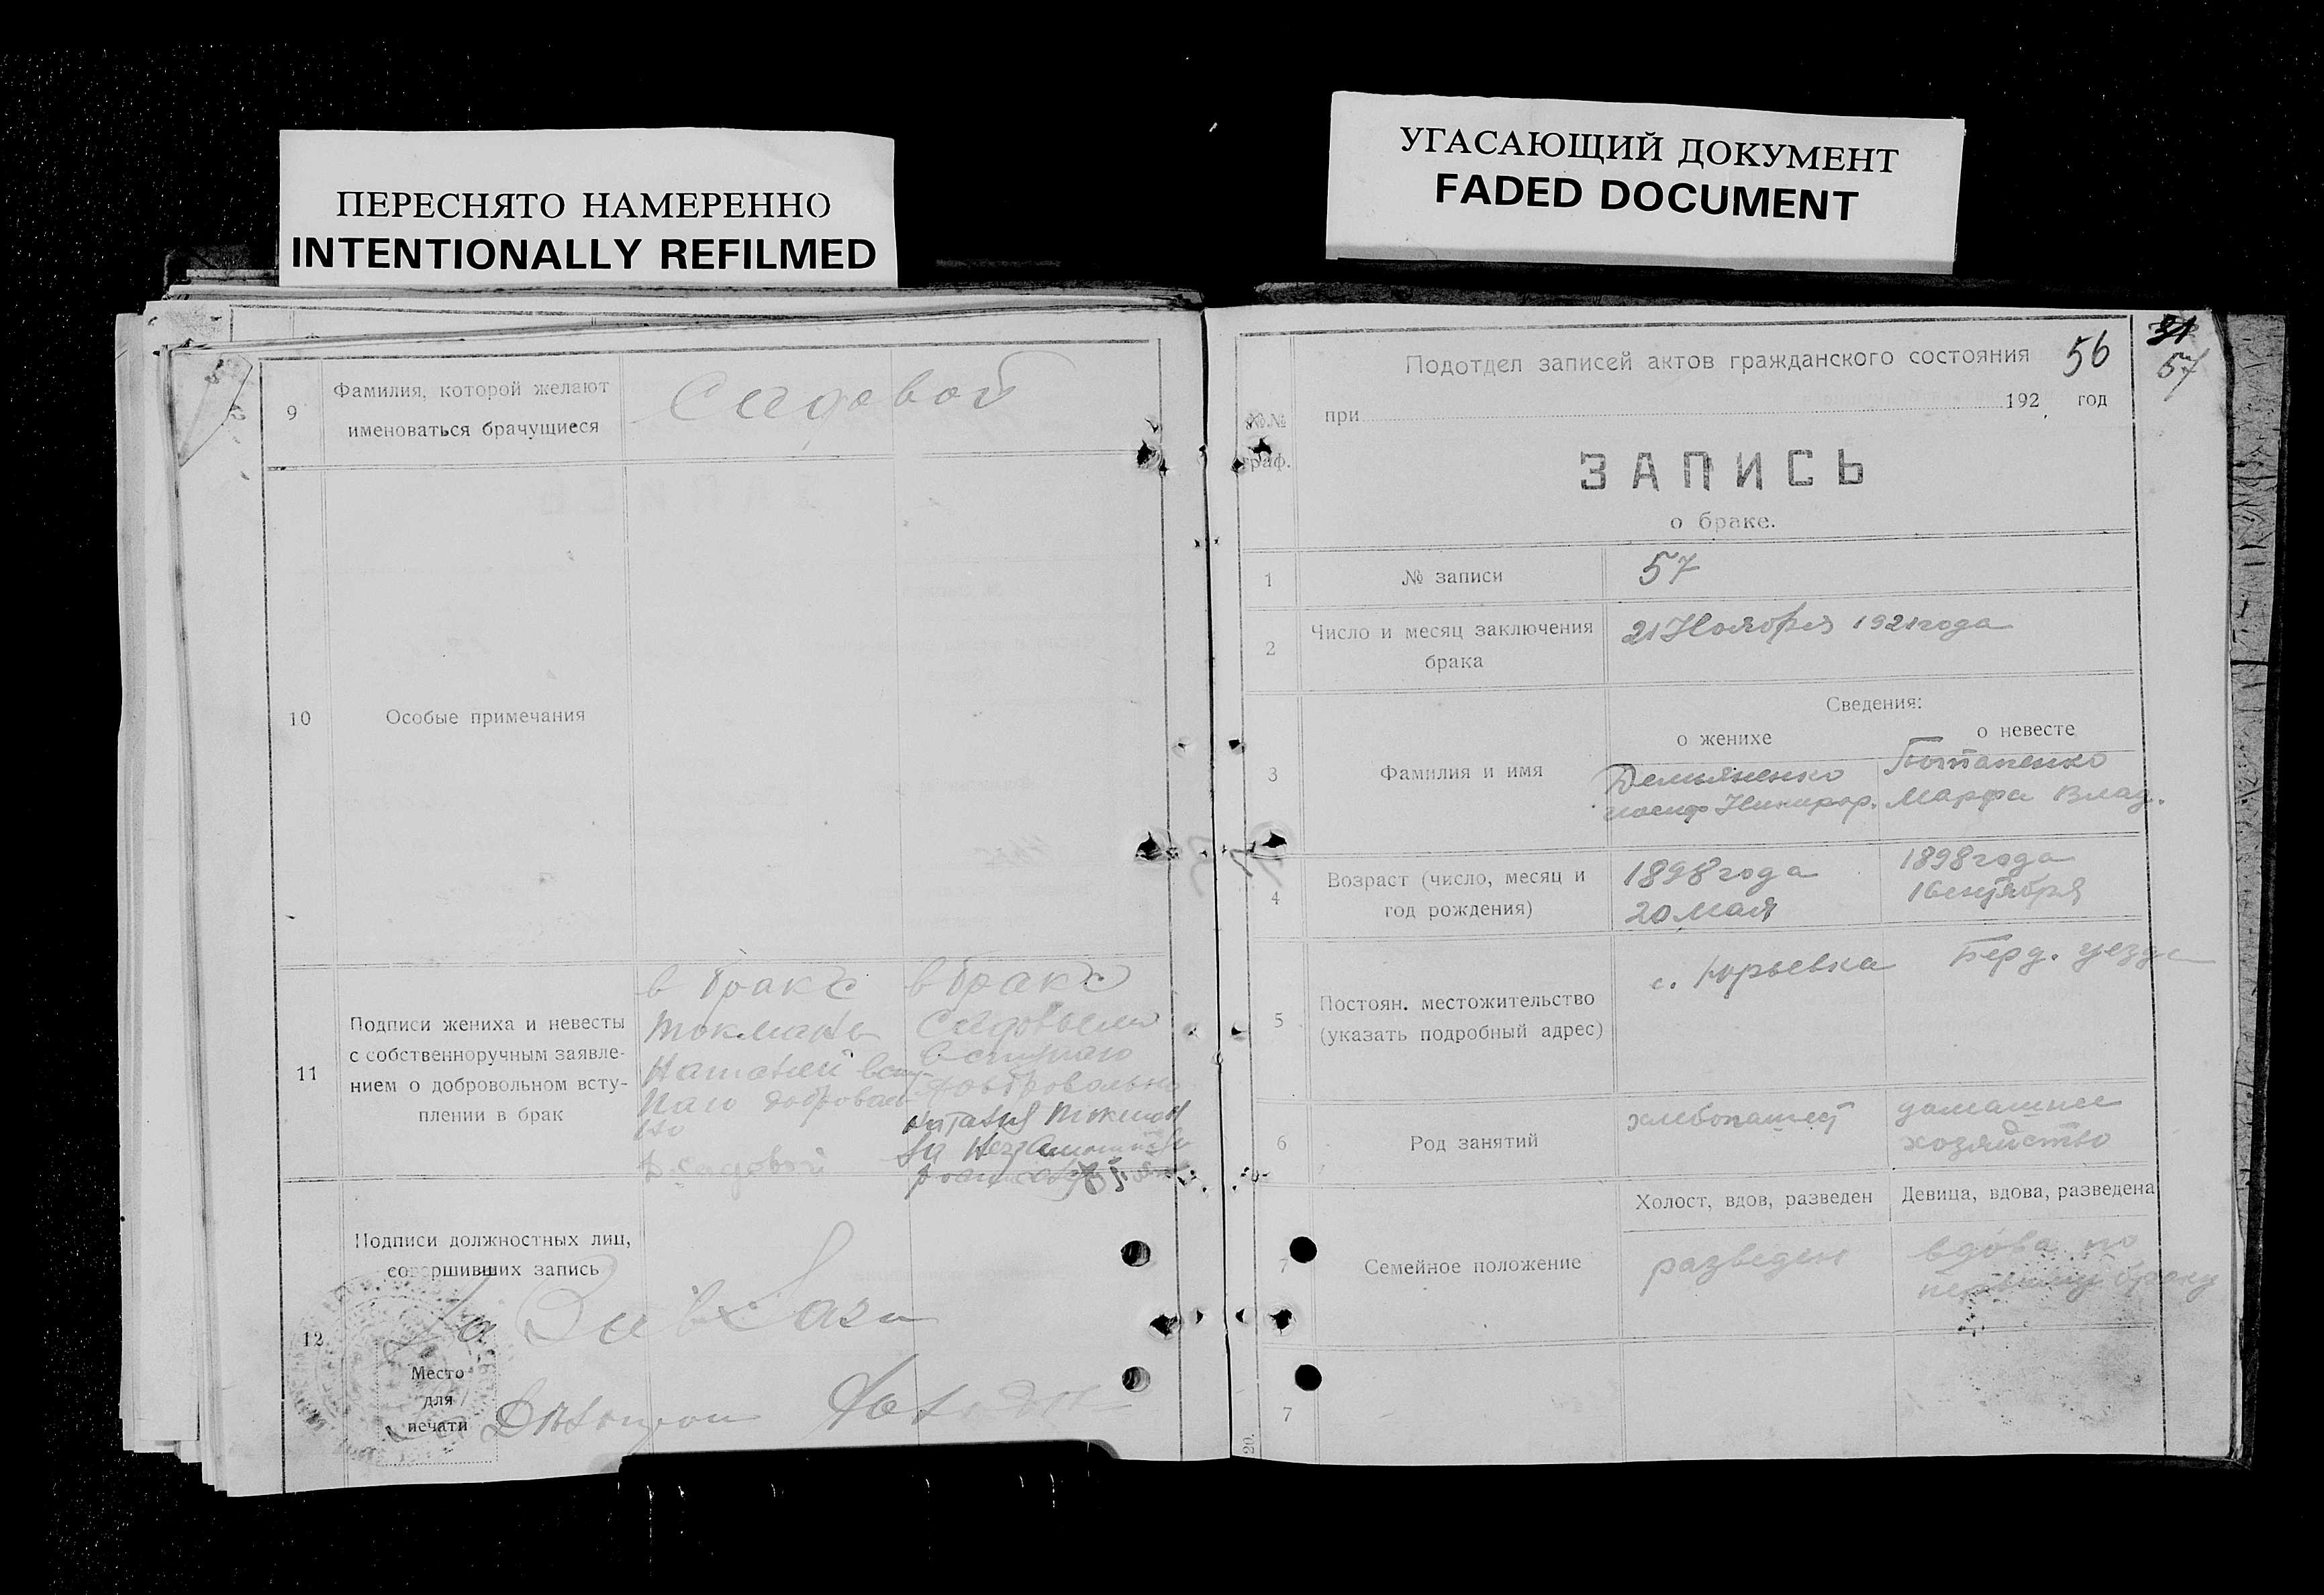 ПЕРЕСНЯТО НАМЕРЕННО
INTENTIONALLY REFILMED
УГАСАЮЩИЙ ДОКУМЕНТ
FADED DOCUMENT
9
Фамилия, которой желают
именоваться брачущиеся
Садовой
10
Особые примечания
11
Подписи жениха и невесты
с собственноручным заявле-
нием о добровольном всту-
плении в брак
в брак с
в брак с
Садовым
вступаю
добровольно
12
Подписи должностных лиц,
совершивших запись
Место
для
печати
31
56
57
Подотдел записей актов гражданского состояния
при 192 год
№.№
граф.
ЗАПИСЬ
о браке.
1
№ записи
57
2
Число и месяц заключения
брака
21 Ноября 1921 года
Сведения:
о женихе
о невесте
3
Фамилия и имя
Демьяненко
Иосиф Никифор.
Потапенко
Марфа Влад.
4
Возраст (число, месяц и
год рождения)
1898 года
20 мая
1898 года
1 сентября
5
Постоян. местожительство
(указать подробный адрес)
с. Юрьевка Берд. уезда
6
Род занятий
хлебопашец
домашнее
хозяйство
7
Семейное положение
Холост, вдов, разведен
Девица, вдова, разведена
разведен
вдова по
первому браку
7
20.